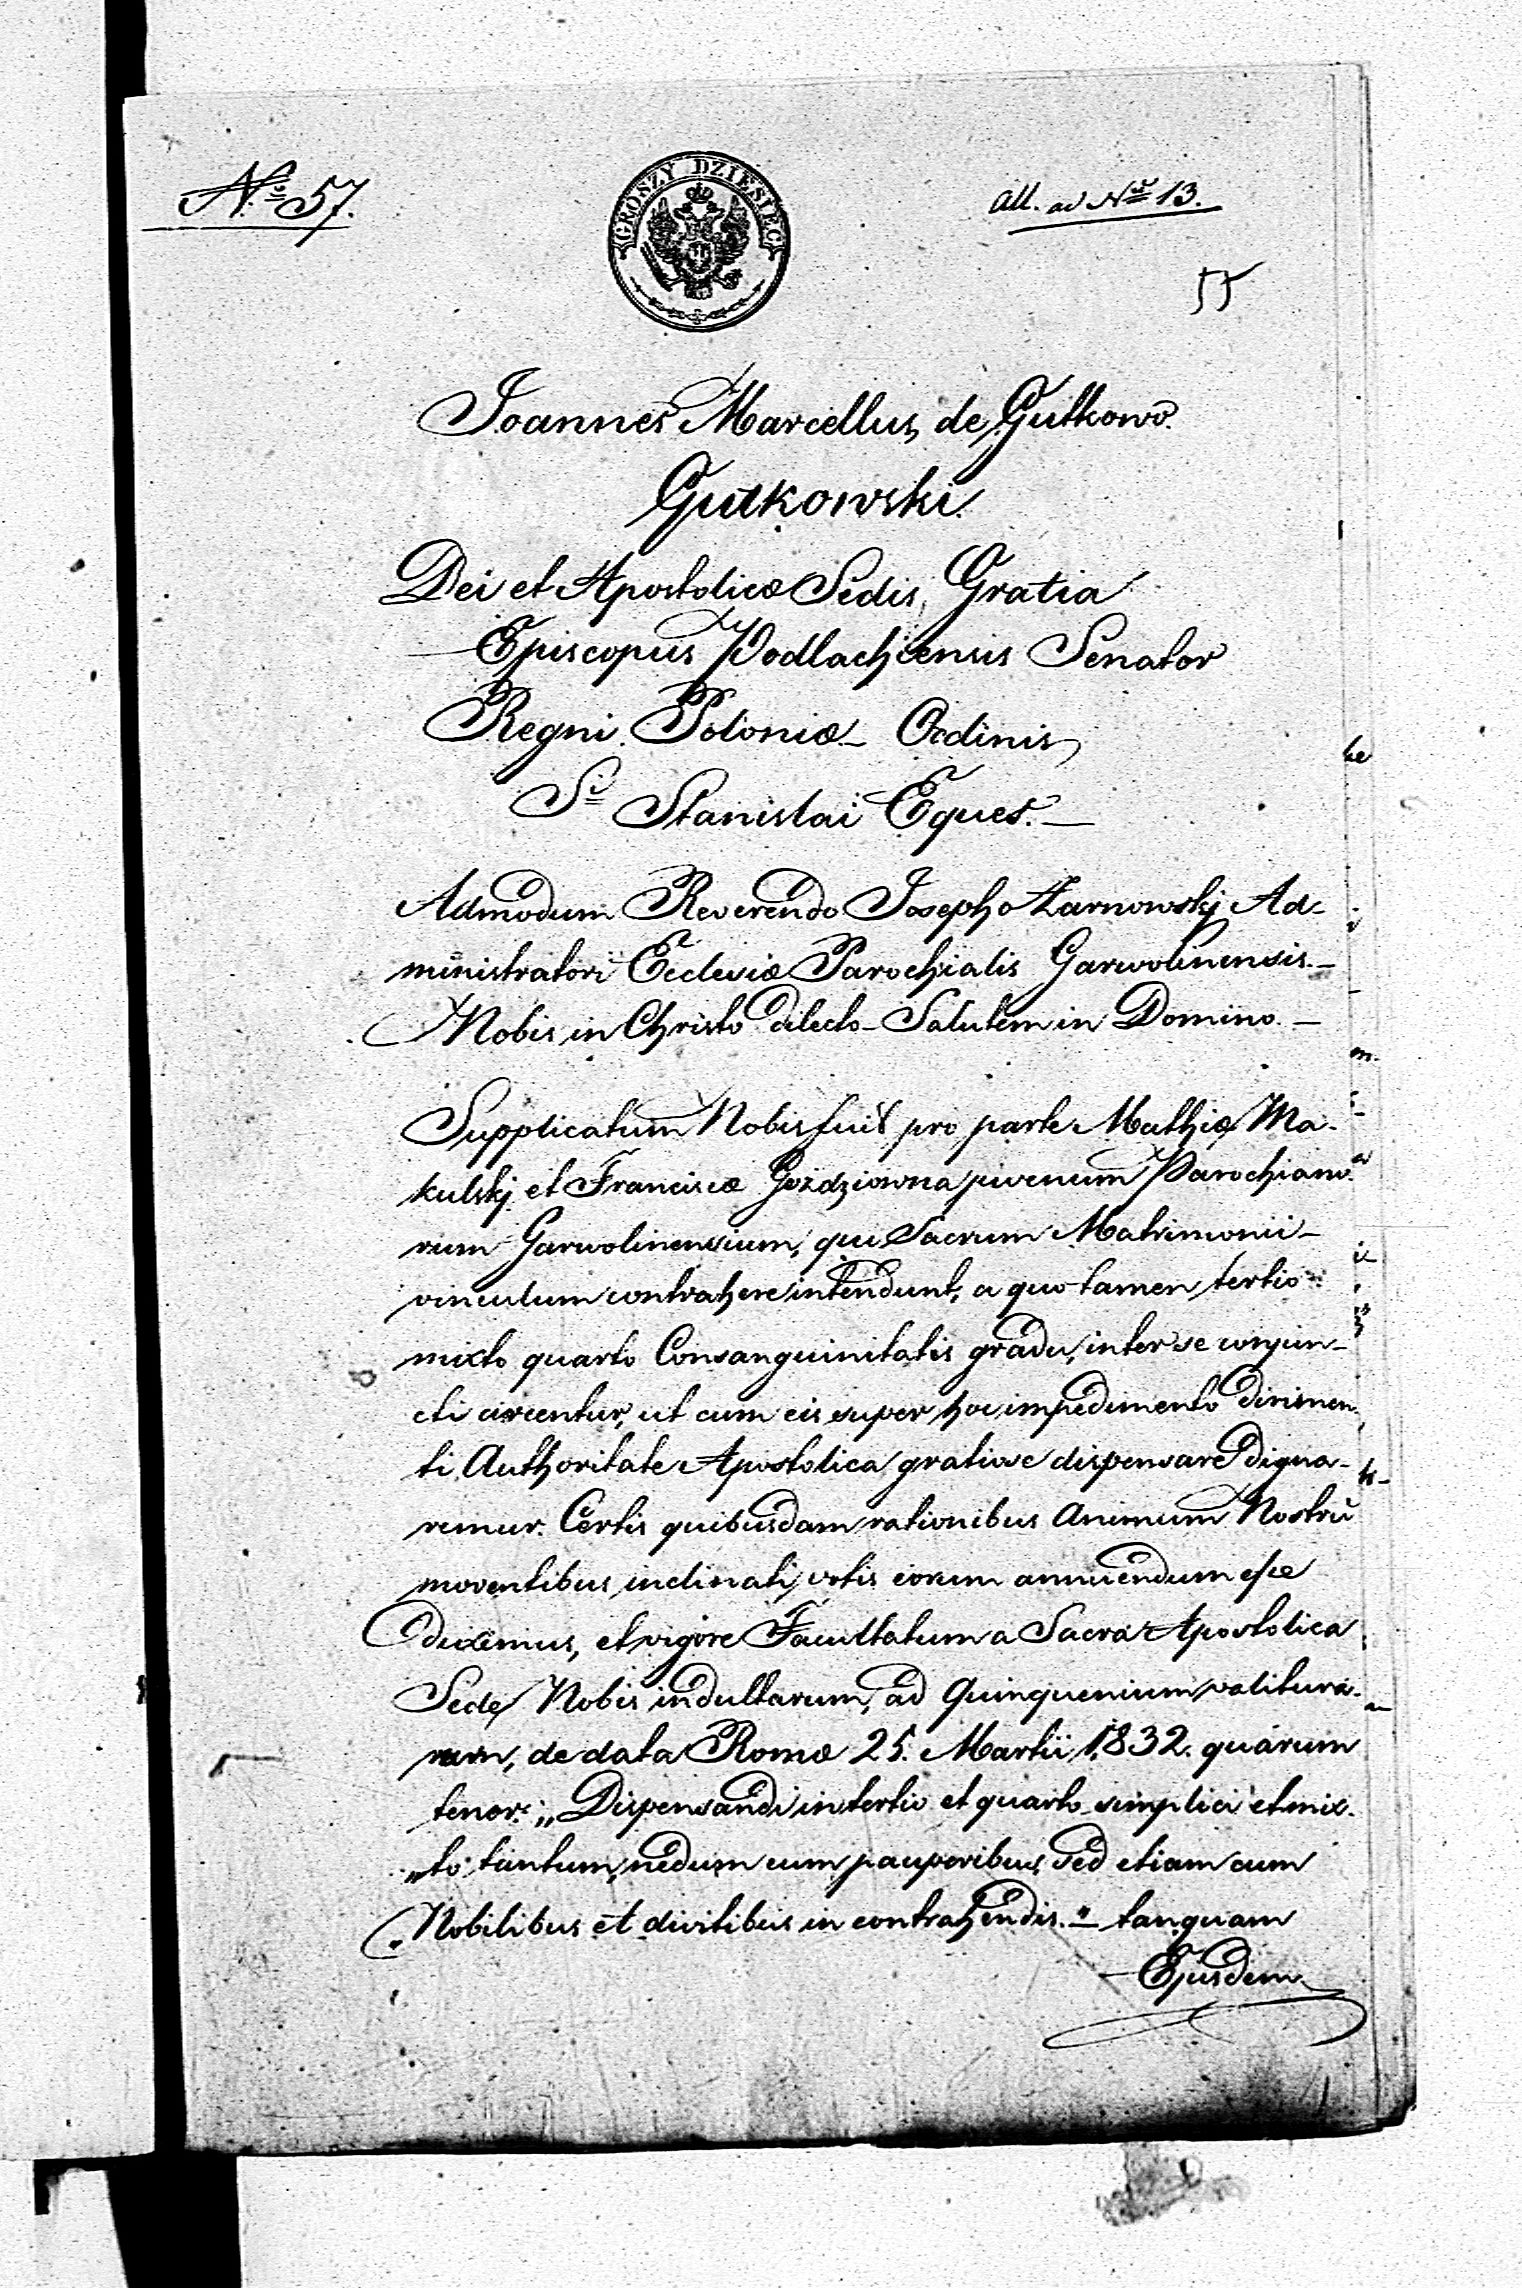 No 57.
GROSZY DZIESIĘĆ
All. ad Nrũ 13.
55
Joannes Marcellus de Gutkowo
Gutkowski
Dei et Apostolicæ Sedis Gratia
Episcopus Podlachiensis Senator
Regni Poloniæ – Ordinis
Sti Stanislai Eques. –
Admodum Reverendo Josepho Żarnowskj Ad-
ministratori Ecclesiæ Parochialis Garwolinensis. –
Nobis in Christo dilecto – Salutem in Domino. –
Supplicatum Nobis fuit pro parte Mathiæ Ma-
kulskj et Franciscæ Gożdziowna juvenum Parochiano-
rum Garwolinensium, qui Sacrum Matrimonii –
vinculum contrahere intendunt, a quo tamen tertio
mixto quarto Consanguinitatis gradu, inter se conjun-
cti arcentur, ut cum eis super hoc impedimento dirimen-
ti Authoritate Apostolica gratiose dispensare digna-
remur. Certis quibusdam rationibus Animum Nostrũ
moventibus inclinati, votis eorum annuendum esse
duximus, et vigore Facultatum a Sacra Apostolica
Sede Nobis indultarum, ad Quinquenium valitura-
rum, de data Romæ 25. Martii 1832. quarum
tenor: „Dispensandi in tertio et quarto simplici et mix-
„to tantum, nedum cum pauperibus, sed etiam cum
„Nobilibus et divitibus in contrahendis." – tanquam
Ejusdem